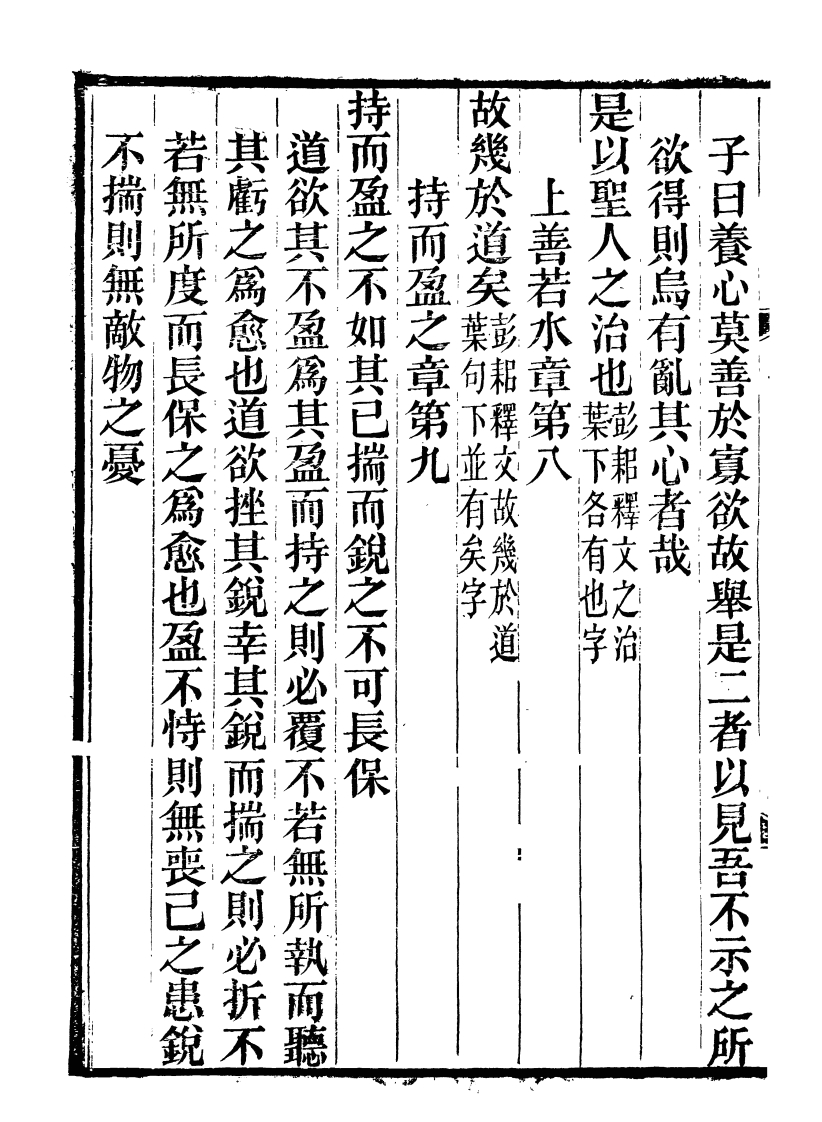 子曰養心莫善於寡欲故舉是二者以見吾不示之所
欲得則烏有亂其心者哉
是以聖人之治也彭耜釋文之治葉下各有也字
上善若水章第八
故幾於道矣彭耜釋文故幾於道葉句下並有矣字
持而盈之章第九
持而盈之不如其已揣而銳之不可長保
道欲其不盈爲其盈而持之則必覆不若無所執而聽
其虧之爲愈也道欲挫其銳幸其銳而揣之則必折不
若無所度而長保之爲愈也盈不恃則無喪己之患銳
不揣則無敵物之憂